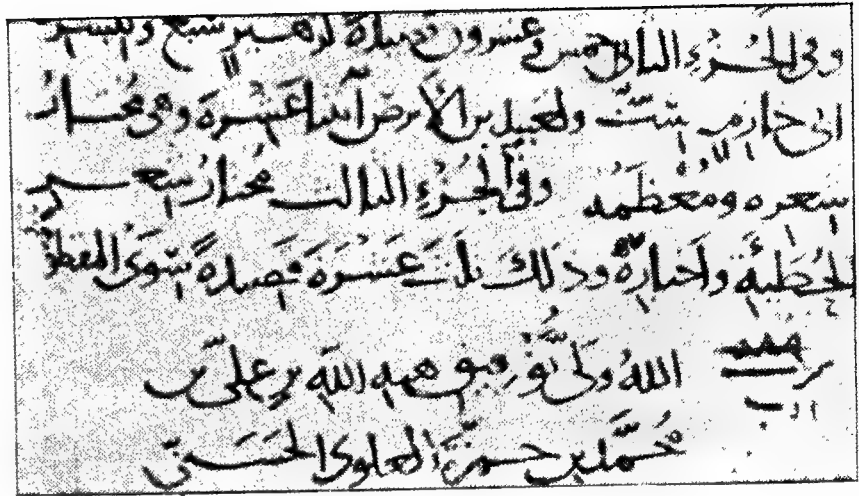 وفى الجُزءِ الثانى خمس وعشرون قصيدةً لزهير سبع ولبشر
ابى خازم ستّ ولعبيد بن الأبرص اثنتا عَشْرة وهى مُختارُ
شعره ومُعْظَمُه وفى الجُزءِ الثالث مُختارُ شعر
الحُطَيئَةِ واَخبارِه وذلك ثلاثَ عَشْرَةَ قصيدةً سِوَى
اللهُ ولىُّ توفيق هبه اللهِ بن على بن
مُحمَّد بن حمزةَ العلوى الحَسَنىّ